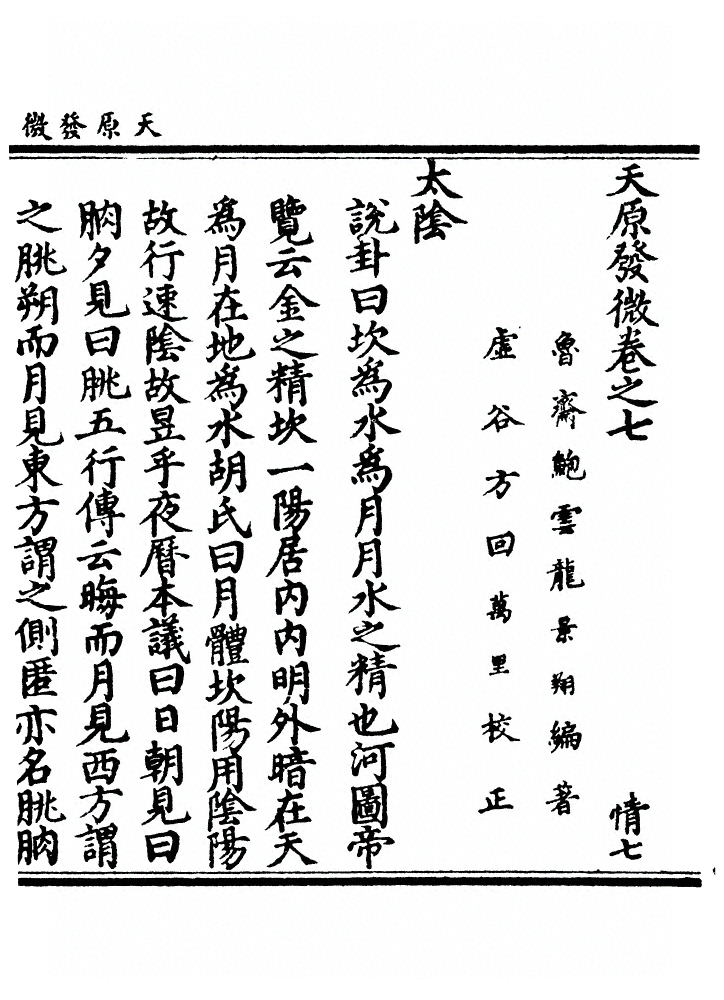 天原發微
天原發微卷之七 情七
魯齋鮑雲龍景翔編著
虛谷方回萬里校正
太陰
說卦曰坎爲水爲月月水之精也河圖帝
覽云金之精坎一陽居内内明外暗在天
爲月在地爲水胡氏曰月體坎陽用陰陽
故行速陰故昱乎夜曆本議曰日朝見曰
朒夕見曰朓五行傳云晦而月見西方謂
之朓朔而月見東方謂之側匿亦名朓朒